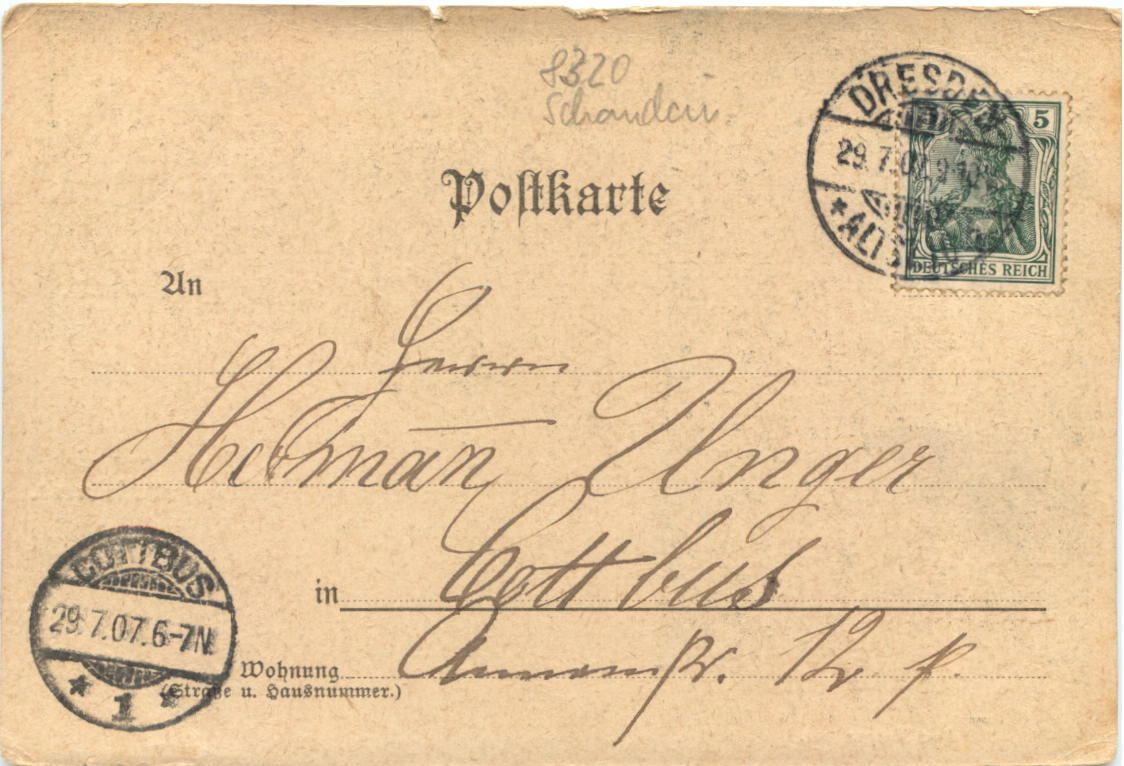 8320
Schandau
DRESDEN
29.7.07. 9-10
* ALTST.
5
DEUTSCHES REICH
Postkarte
An
Herrn
Hermañ Unger
in Cottbus
Wohnung 12 p.
(Straße u. Hausnummer.)
COTTBUS
29.7.07. 6-7N.
* 1 *